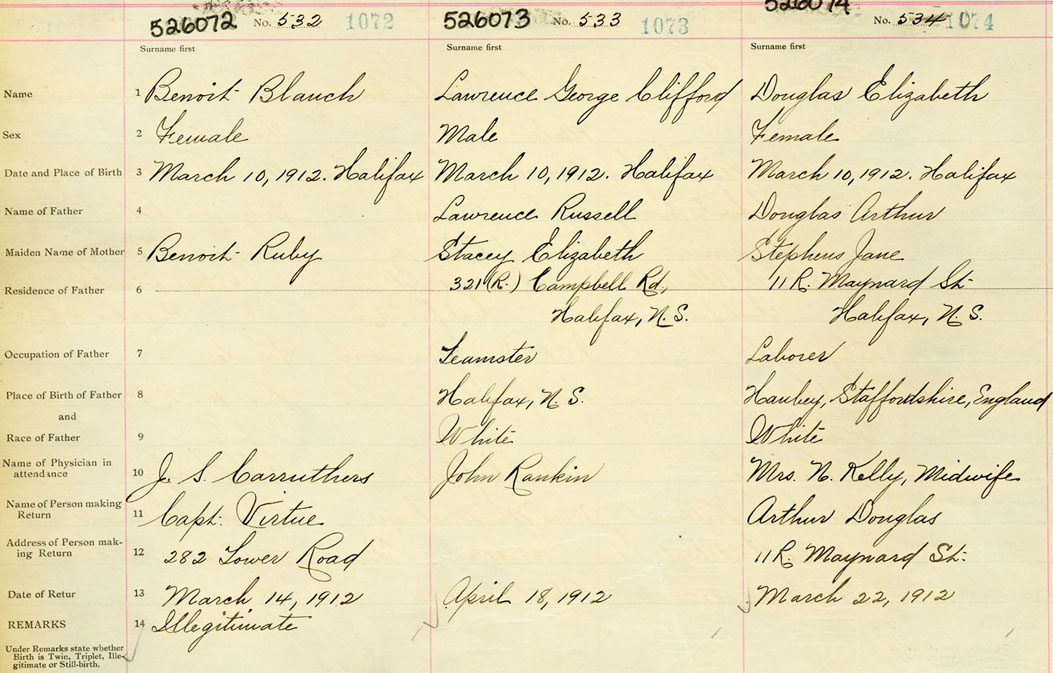 526072 No. 532 1072 526073 No. 533 1073 526074 No. 534 1074
Surname first Surname first Surname first
Name 1 Benoit Blanch Lawrence George Clifford Douglas Elizabeth
Sex 2 Female Male Female
Date and Place of Birth 3 March 10, 1912. Halifax March 10, 1912. Halifax March 10, 1912. Halifax
Name of Father 4 Lawrence Russell Douglas Arthur
Maiden Name of Mother 5 Benoit Ruby Stacey Elizabeth Stephens Jane
Residence of Father 6 321 (R.) Campbell Rd, 11 R. Maynard St.
Halifax, N.S. Halifax, N.S.
Occupation of Father 7 Teamster Laborer
Place of Birth of Father 8 Halifax, N.S. Hanbey, Staffordshire, England
and
Race of Father 9 White White
Name of Physician in attendance 10 J. S. Carruthers John Rankin Mrs. N. Kelly, Midwife
Name of Person making Return 11 Capt. Virtue Arthur Douglas
Address of Person mak-
ing Return 12 282 Tower Road 11 R. Maynard St.
Date of Retur 13 March 14, 1912 April 18, 1912 March 22, 1912
REMARKS 14 Illegitimate
Under Remarks state whether
Birth is Twin, Triplet, Ille-
gitimate or Still-birth.